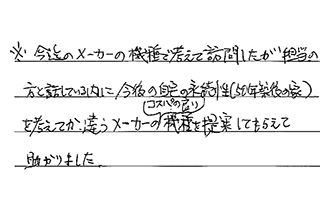 ※今迄のメーカーの機種で考えて訪問したが担当の
方と話している内に今後の自宅の永続性(50年築後の家)
を考えてか、違うメーカーのコスパの良い機種を提案してもらえて
助かりました